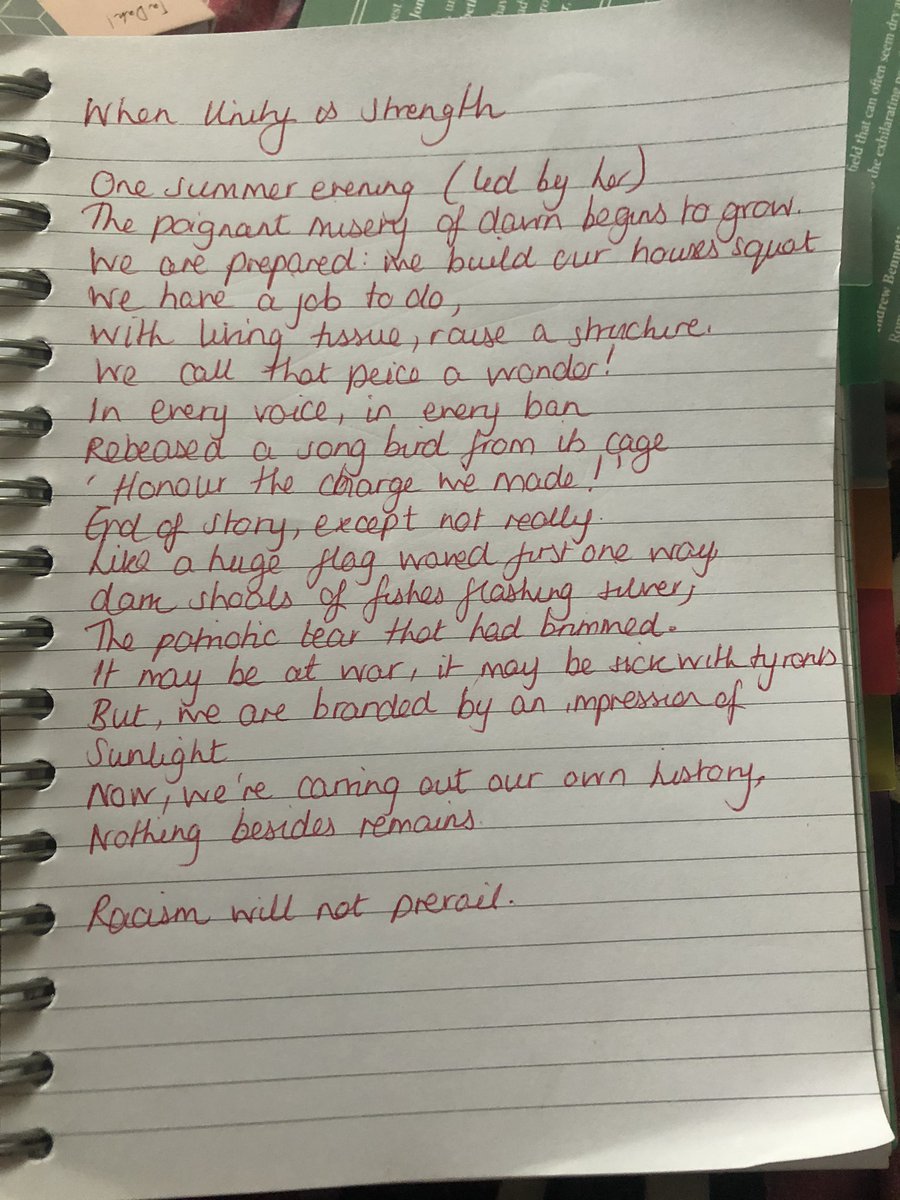 When Unity is Strength
One summer evening (led by her)
The poignant misery of dawn begins to grow.
We are prepared: we build our houses squat
We have a job to do,
With living tissue, raise a structure.
We call that peice a wonder!
In every voice, in every ban
Rebeased a song bird from its cage
'Honour the charge we made!'
End of story, except not really.
Like a huge flag waved first one way
dam shoals of fishes flashing silver,
The patriotic tear that had brimmed.
It may be at war, it may be sick with tyrants
But, we are branded by an impression of
Sunlight
Now, we're carving out our own history,
Nothing besides remains.
Racism will not prevail.
field that can often seem dry
the exhilarating
ndrew Bennett